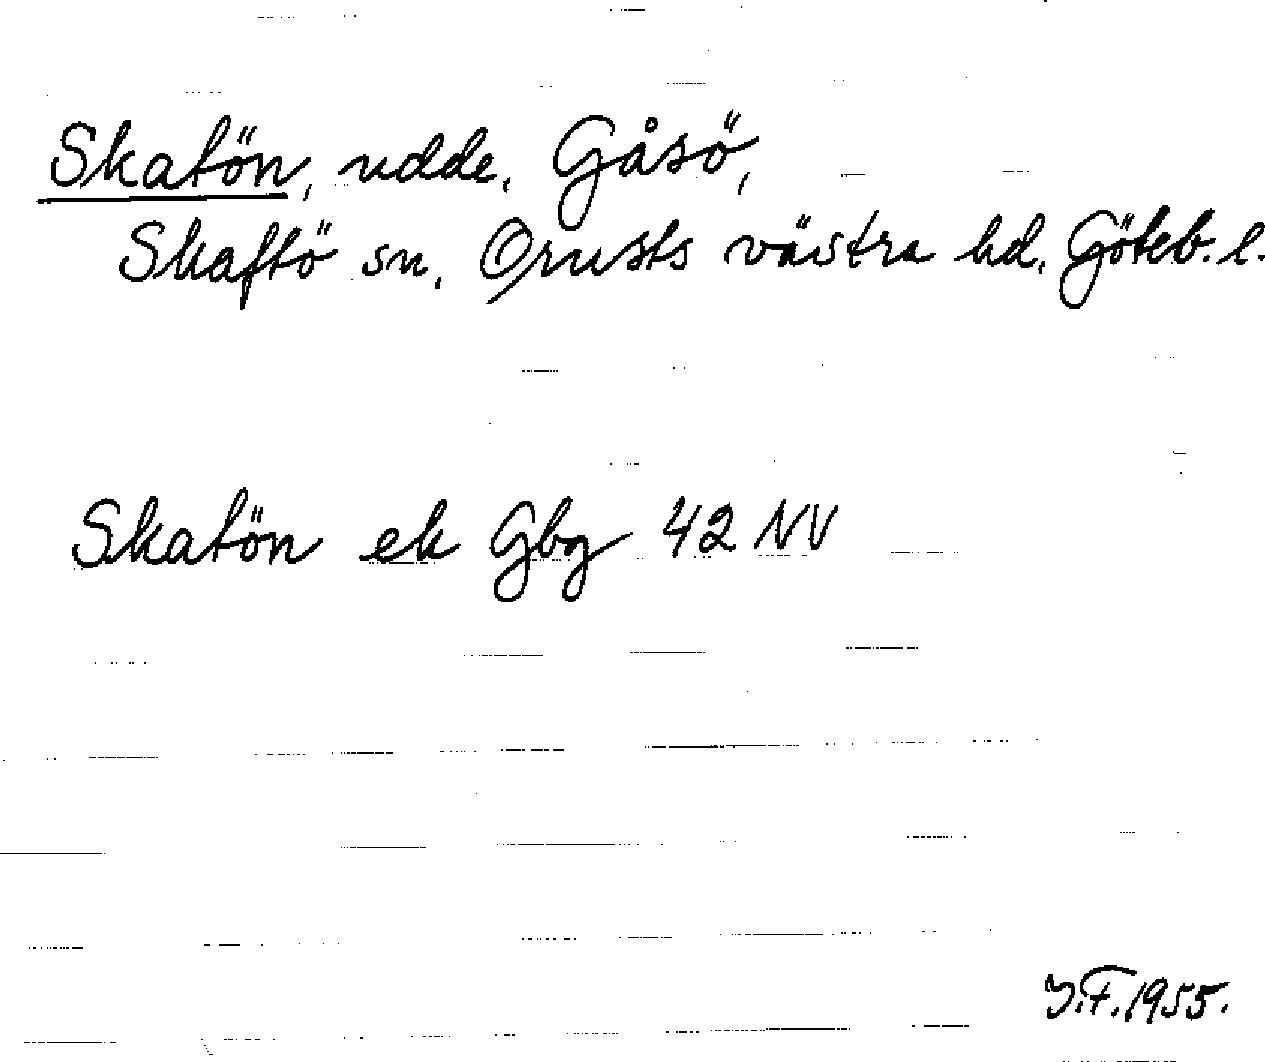 Skatön, udde, Gåsö,
Skaftö sn, Orusts västra hd, Göteb. l.
Skatön ek Gbg 42 NV
J.F. 1955.